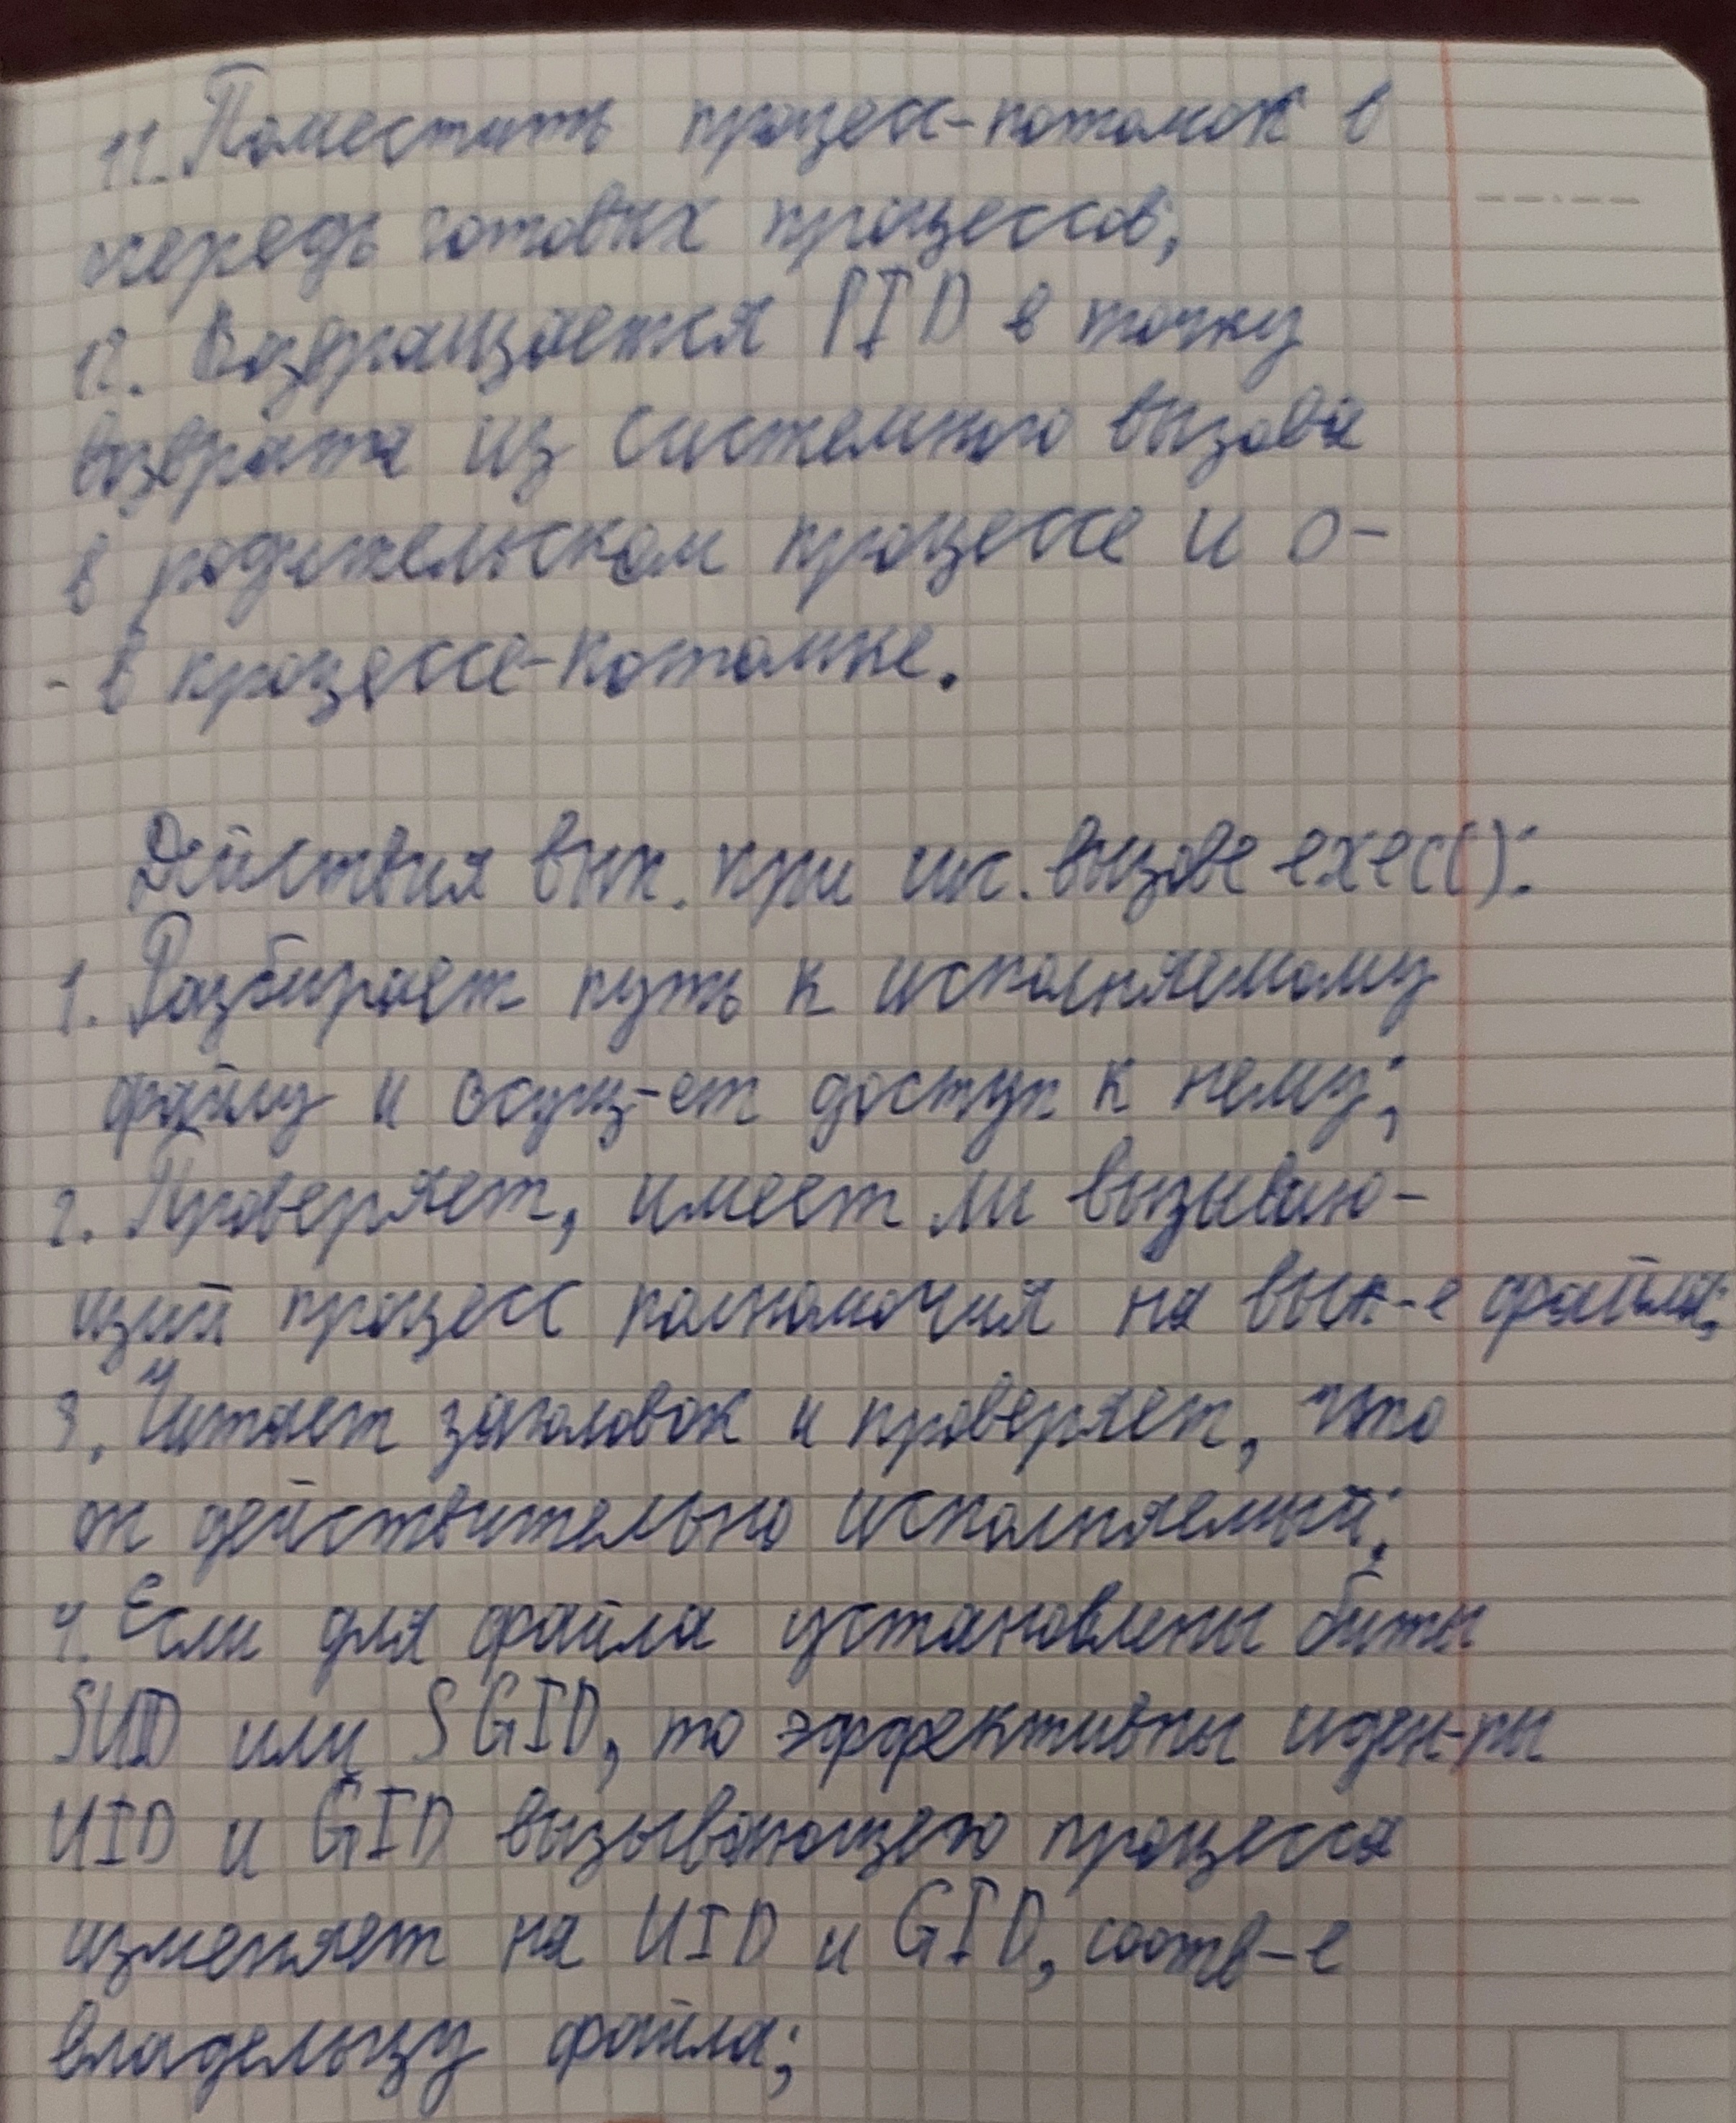 11. Поместить процесс-потомок в
очередь готовых процессов;
12. Возвращается PID в точку
возврата из системного вызова
в родительском процессе и 0-
- в процессе-потомке.
Действия вып. при сис. вызове exec():
1. Разбирает путь к исполняемому
файлу и осущ-ет доступ к нему;
2. Проверяет, имеет ли вызываю-
щий процесс полномочия на вып-е файла;
3. Читает заголовок и проверяет, что
он действительно исполняемый;
4. Если для файла установлены биты
SUID или SGID, то эффективны иден-ры
UID и GID вызывающего процесса
изменяет на UID и GID, соотв-е
владельцу файла;